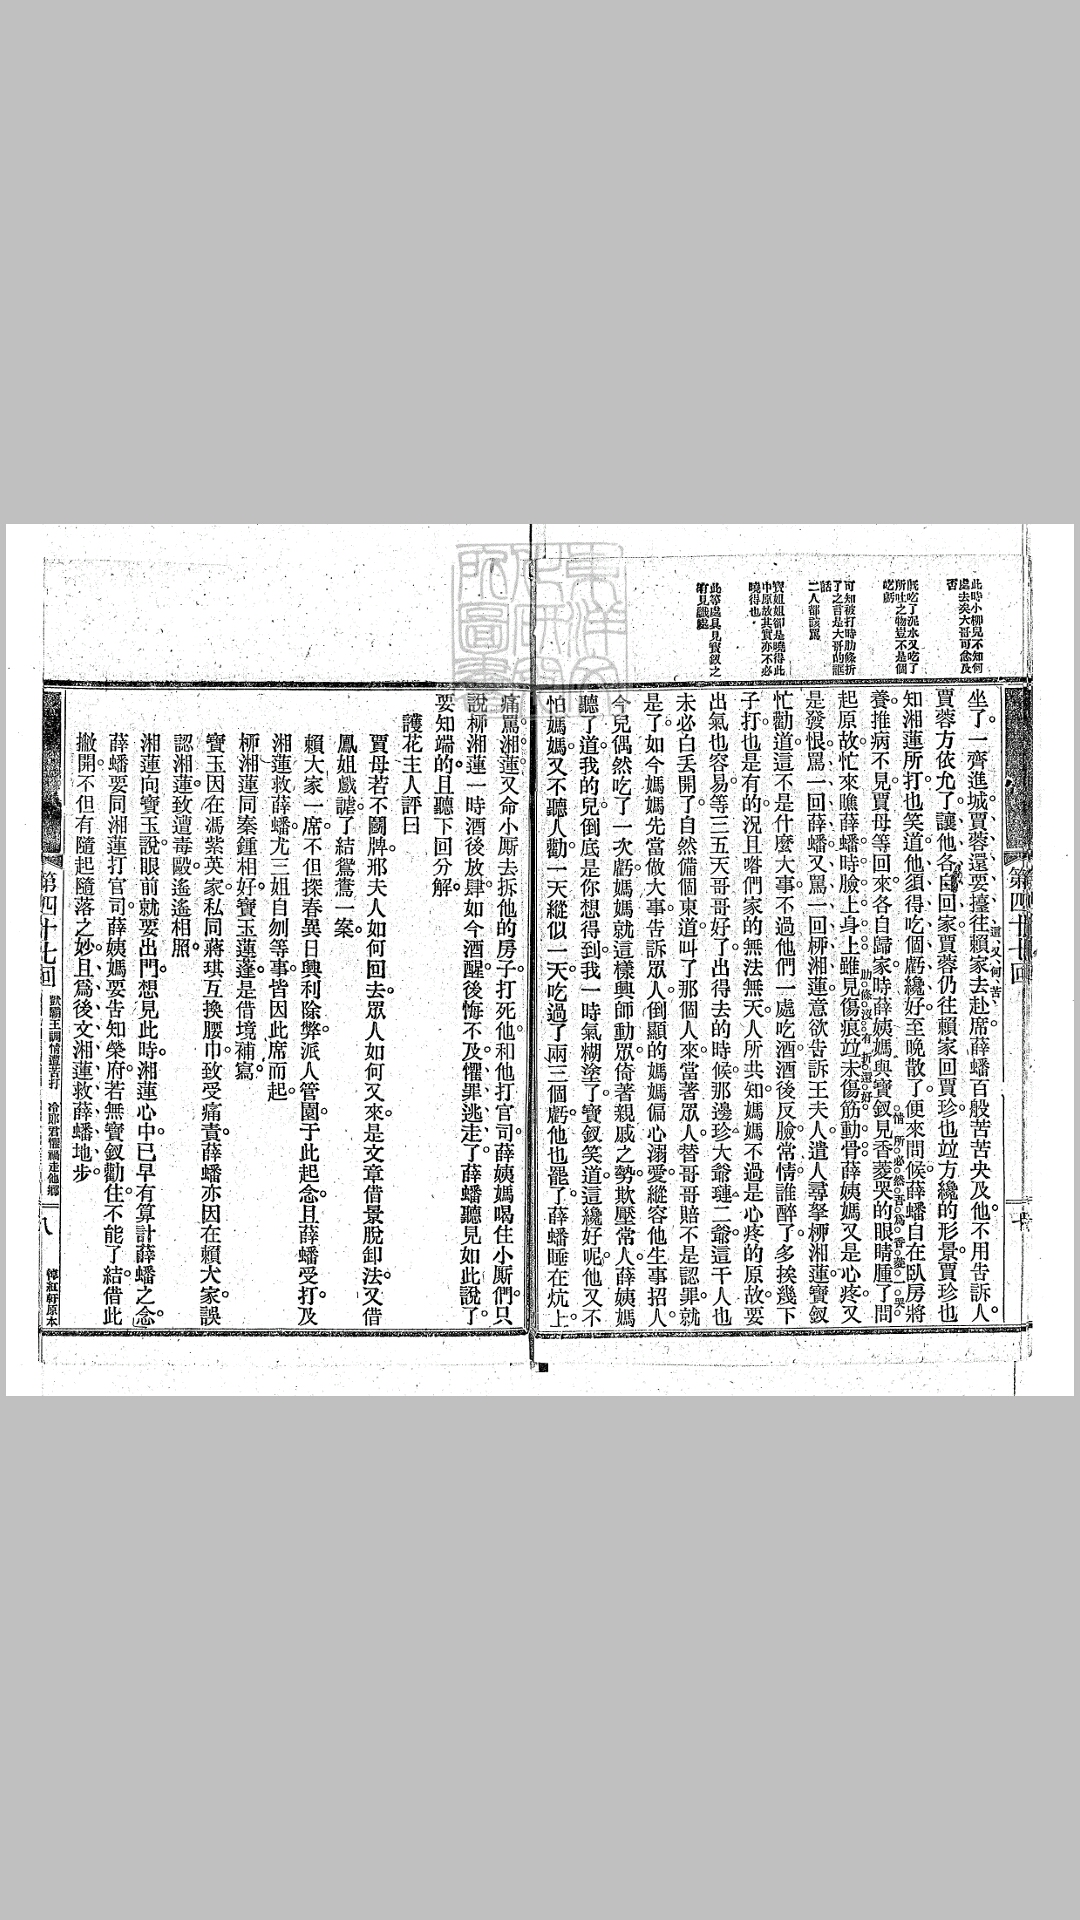 此時小柳兒不知何
處去矣大哥可念及
否
既吃了泥水又吃了
所吐之物豈不是個
吃虧
可知被打時肋條折
了之言是大哥的謊
話
二人都該罵
寶姐姐卻是曉得此
中原故其實亦不必
曉得也
此等處具見寶釵之
有見識處
第四十七回
坐了一齊進城賈蓉還要擡往賴家去赴席薛蟠百般苦苦央及他不用告訴人
還又何苦
賈蓉方依允了讓他各自回家賈蓉仍往賴家回賈珍也竝方纔的形景賈珍也
知湘蓮所打也笑道他須得吃個虧纔好至晚散了便來問候薛蟠自在臥房將
養推病不見賈母等回來各自歸家時薛姨媽與寶釵見香菱哭的眼睛腫了問
情所必然吾爲香菱一哭
起原故忙來瞧薛蟠時臉上身上雖見傷痕竝未傷筋動骨薛姨媽又是心疼又
肋條沒有折還好
是發恨罵一回薛蟠又罵一回柳湘蓮意欲告訴王夫人遣人尋拏柳湘蓮寶釵
忙勸道這不是什麼大事不過他們一處吃酒酒後反臉常情誰醉了多挨幾下
子打也是有的況且喒們家的無法無天人所共知媽媽不過是心疼的原故要
出氣也容易等三五天哥哥好了出得去的時候那邊珍大爺璉二爺這干人也
未必白丟開了自然備個東道叫了那個人來當著眾人替哥哥賠不是認罪就
是了如今媽媽先當做大事告訴眾人倒顯的媽媽偏心溺愛縱容他生事招人
今兒偶然吃了一次虧媽媽就這樣興師動眾倚著親戚之勢欺壓常人薛姨媽
聽了道我的兒倒底是你想得到我一時氣糊塗了寶釵笑道這纔好呢他又不
怕媽媽又不聽人勸一天縱似一天吃過了兩三個虧他也罷了薛蟠睡在炕上
痛罵湘蓮又命小厮去拆他的房子打死他和他打官司薛姨媽喝住小厮們只
說柳湘蓮一時酒後放肆如今酒醒後悔不及懼罪逃走了薛蟠聽見如此說了
要知端的且聽下回分解
護花主人評曰
賈母若不鬬牌邢夫人如何回去眾人如何又來是文章借景脫卸法又借
鳳姐戲謔了結鴛鴦一案
賴大家一席不但探春異日興利除弊派人管園于此起念且薛蟠受打及
湘蓮救薛蟠尤三姐自刎等事皆因此席而起
柳湘蓮同秦鍾相好寶玉蓮蓬是借境補寫
寶玉因在馮紫英家私同蔣琪互換腰巾致受痛責薛蟠亦因在賴大家誤
認湘蓮致遭毒毆遙遙相照
湘蓮向寶玉說眼前就要出門想見此時湘蓮心中已早有算計薛蟠之念
薛蟠要同湘蓮打官司薛姨媽要告知榮府若無寶釵勸住不能了結借此
撇開不但有隨起隨落之妙且爲後文湘蓮救薛蟠地步
第四十七回
獃霸王調情遭苦打 冷郎君懼禍走他鄉
八
悼紅軒原本